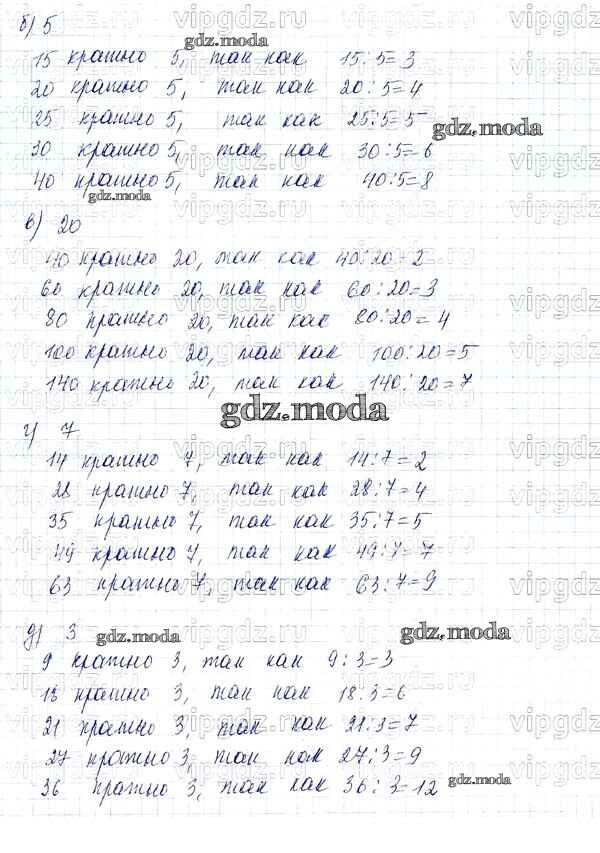 б) 5
15 кратно 5, так как 15:5=3
20 кратно 5, так как 20:5=4
25 кратно 5, так как 25:5=5
30 кратно 5, так как 30:5=6
40 кратно 5, так как 40:5=8
в) 20
40 кратно 20, так как 40:20=2
60 кратно 20, так как 60:20=3
80 кратно 20, так как 80:20=4
100 кратно 20, так как 100:20=5
140 кратно 20, так как 140:20=7
г) 7
14 кратно 7, так как 14:7=2
28 кратно 7, так как 28:7=4
35 кратно 7, так как 35:7=5
49 кратно 7, так как 49:7=7
63 кратно 7, так как 63:7=9
д) 3
9 кратно 3, так как 9:3=3
18 кратно 3, так как 18:3=6
21 кратно 3, так как 21:3=7
27 кратно 3, так как 27:3=9
36 кратно 3, так как 36:3=12
gdz.moda
vipgdz.ru